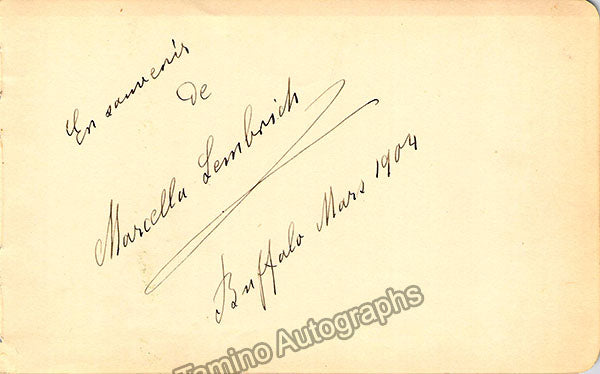 En souvenir
de
Marcella Sembrich
Buffalo Mars 1904
Tamino Autographs